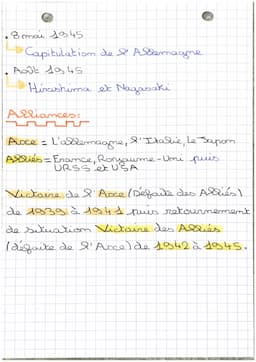 . 8 mai 1945
Capitulation de l'Allemagne
. Août 1945
Hiroshima et Nagasaki
Alliances:
Axe = L'allemagne, l'Italie, le Japon
Alliés = France, Royaume-Uni puis
URSS et USA
Victoire de l'Axe (Défaite des Alliés)
de 1939 à 1941 puis retournement
de situation Victoire des Alliés
(défaite de l'Axe) de 1942 à 1945.